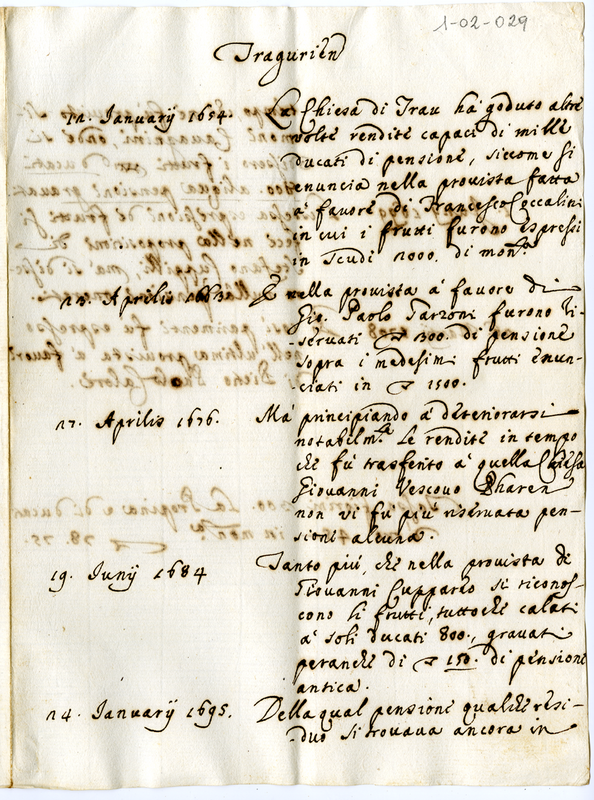 1-02-029
Tragurien
12. Januarij 1654. La Chiesa di Trau hà goduto altre
volte rendite capaci di mille
ducati di pensione, siccome si
enuncia nella provista fatta
à favore di Francesco Coccalini
in cui i frutti furono espressi
in scudi 2000. di mon.ta
12. Aprilis 1663. E nella provista à favore di
Gio. Paolo Tarzoni furono ri-
servati 300. di pensione
sopra i medesimi frutti enun-
ciati in 1500.
27. Aprilis 1676. Mà principiando à deteriorarsi
notabilm.te le rendite in tempo
che fù trasferito à quella Chiesa
Giovanni Vescovo Pharen
non vi fu più riservata pen-
sioni alcuna.
19. Junij 1684 Tanto più, che nella provista di
Giovanni Cuppareo si riconos-
cono li frutti, tuttoche calati
à soli ducati 800., gravati
peranche di 150. di pensione
antica.
24. Januarij 1695. Della qual pensione qualche resi-
duo si trovava ancora in